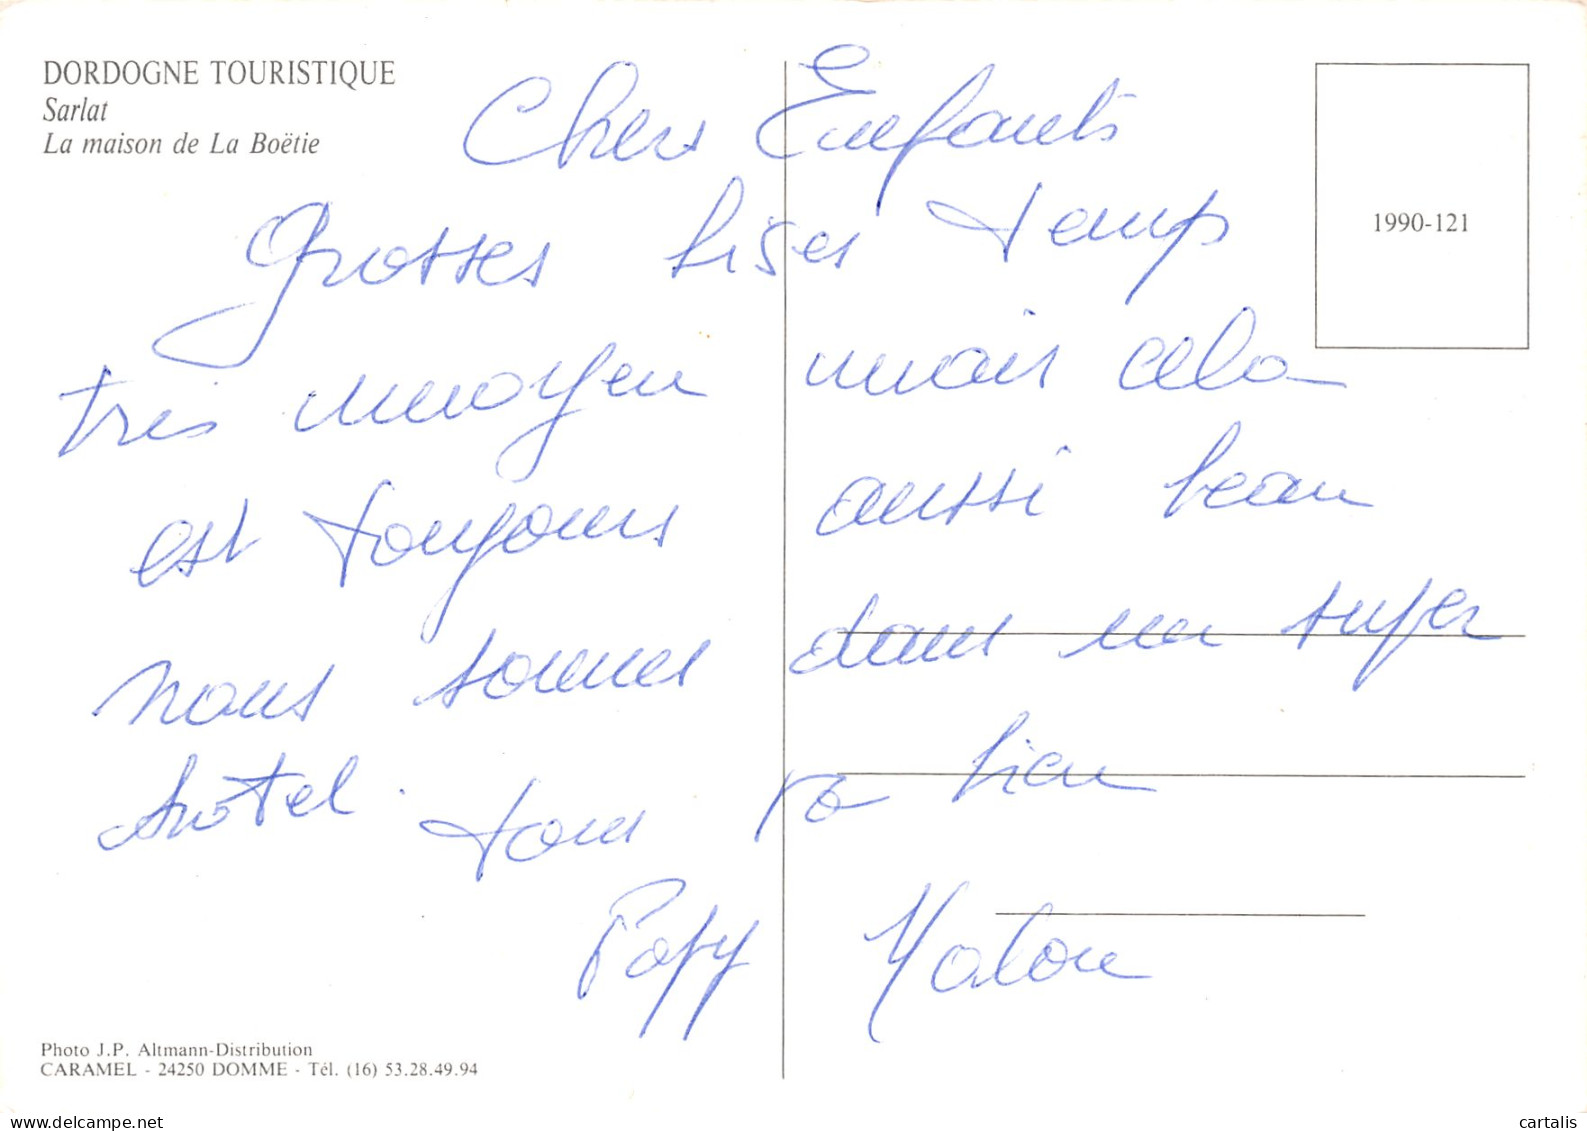 DORDOGNE TOURISTIQUE
Sarlat
La maison de La Boëtie
1990-121
Chers Enfants
Grosses bises temps
très moyen mais cela
est toujours aussi beau
nous sommes dans un super
hotel. tous va bien
Papy Malou
Photo J.P. Altmann-Distribution
CARAMEL - 24250 DOMME - Tél. (16) 53.28.49.94
delcampe.net
cartalis